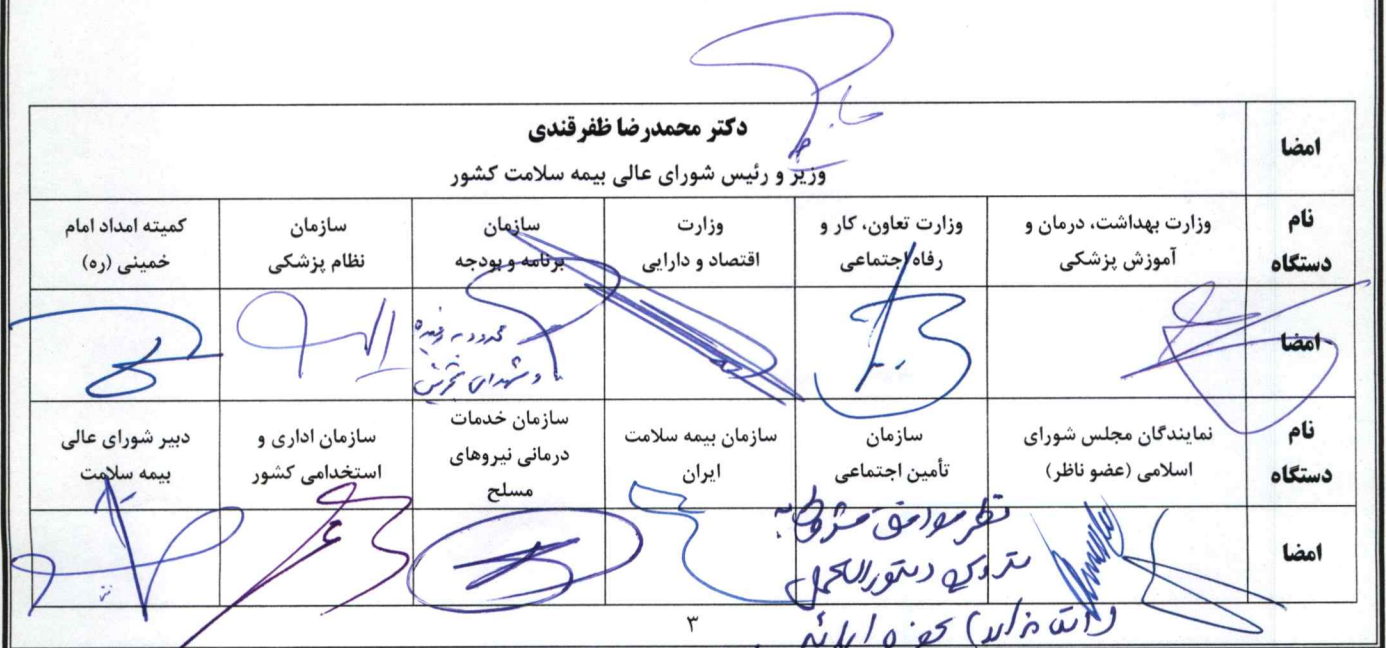 امضا
دکتر محمدرضا ظفرقندی
وزیر و رئیس شورای عالی بیمه سلامت کشور
نام دستگاه
وزارت بهداشت، درمان و
آموزش پزشکی
وزارت تعاون، کار و
رفاه اجتماعی
وزارت
اقتصاد و دارایی
سازمان
برنامه و بودجه
سازمان
نظام پزشکی
کمیته امداد امام
خمینی (ره)
امضا
نام دستگاه
نمایندگان مجلس شورای
اسلامی (عضو ناظر)
سازمان
تأمین اجتماعی
سازمان بیمه سلامت
ایران
سازمان خدمات
درمانی نیروهای
مسلح
سازمان اداری و
استخدامی کشور
دبیر شورای عالی
بیمه سلامت
امضا
نظر موافق مشروط به
دستورالعمل
۳